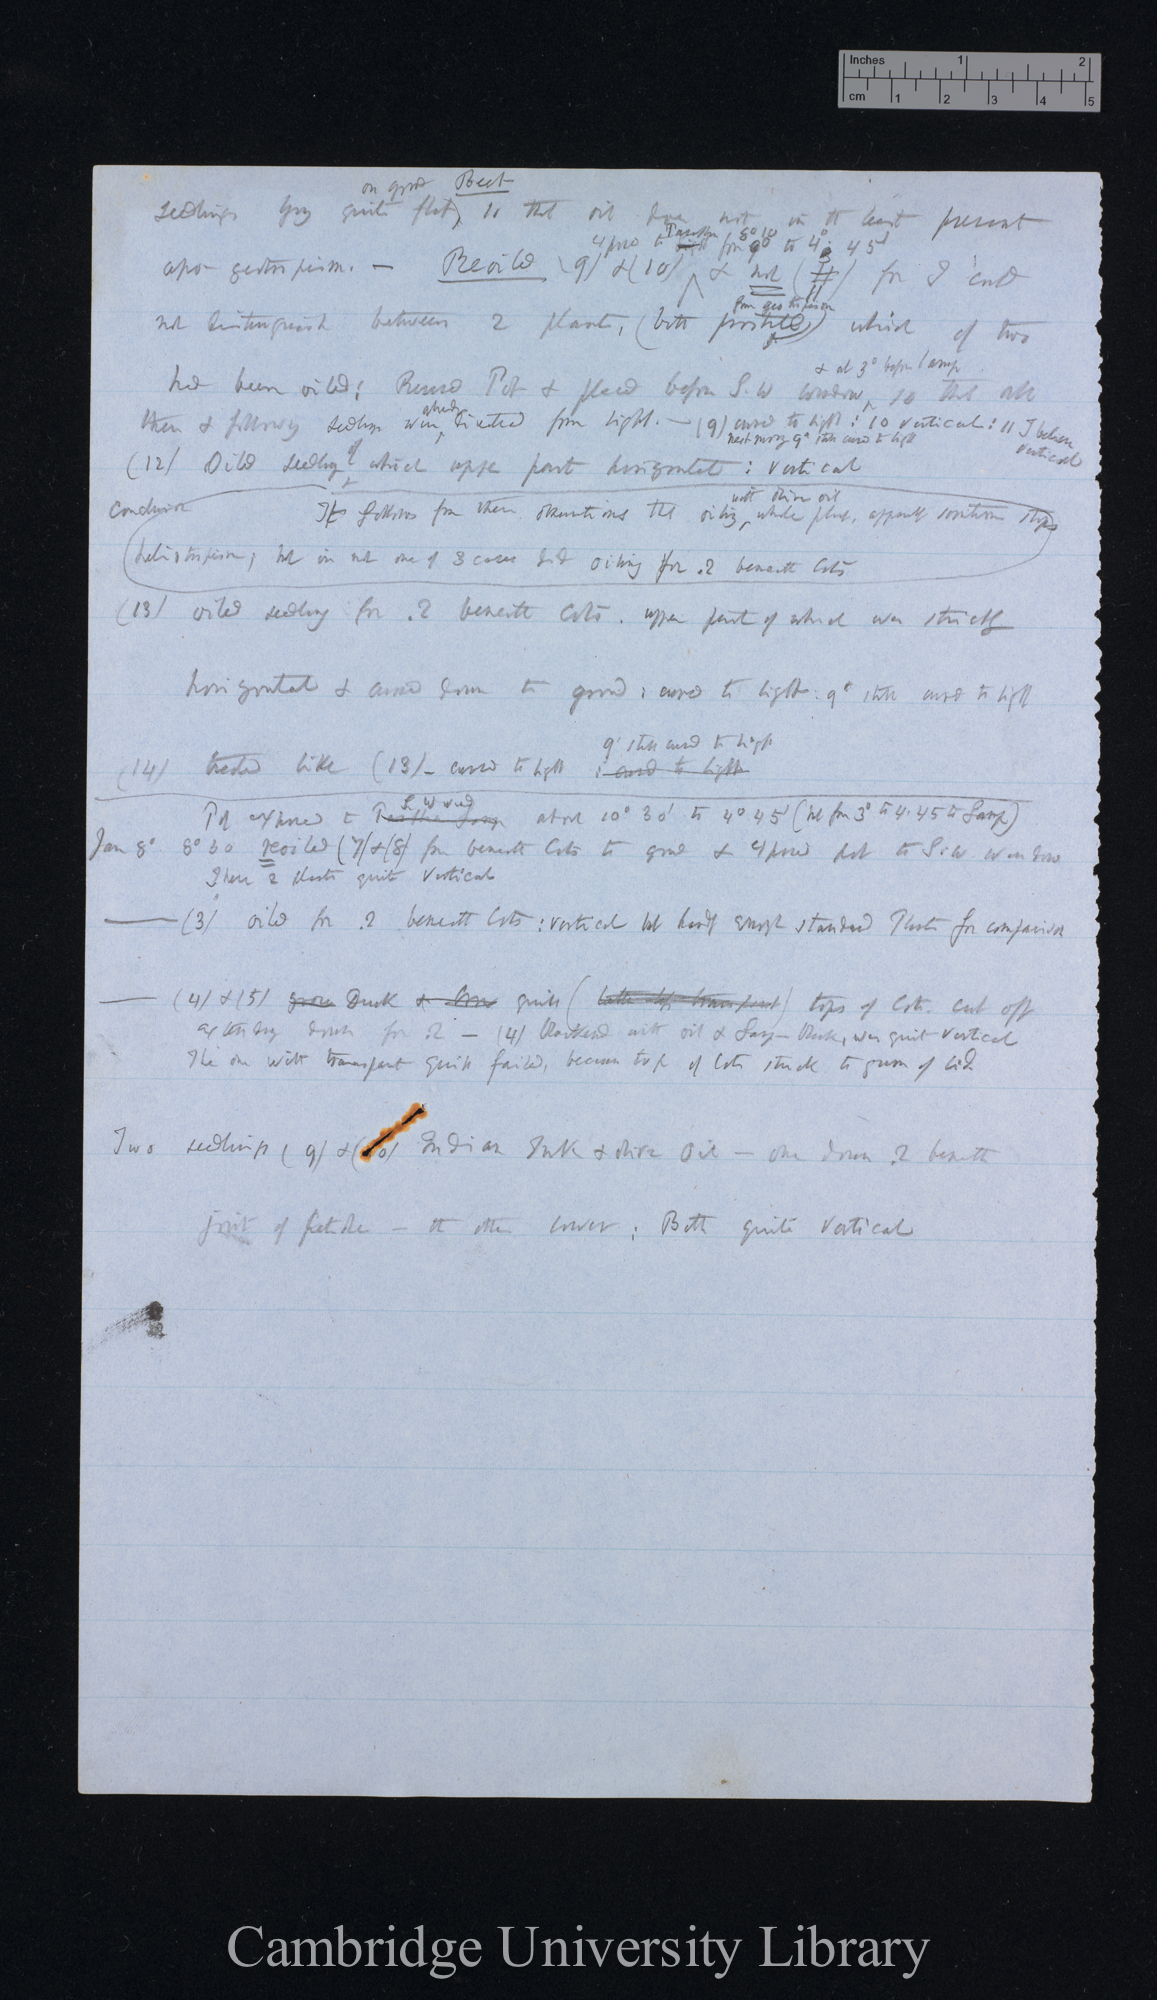 Inches 1 2
cm 1 2 3 4 5
on ground Beet
seedlings lying quite flat, so that oil does not in the least prevent
exposed to Paraffin for 8° 10' to 4° 45'
apo-geotropism. — Reoiled (9) & (10) & not (11) for I cd
from geotropism
not distinguish between 2 plants, (both ) which of two
& at 3° before lamp
had been oiled; Pot & placed before S.W window, so that all
already
them & following seedlings were directed from light. — (9) curved to light : 10 vertical : 11 I believe vertical
next morng 9° still curved to light
(12) Oiled seedling of which upper part horizontal : vertical
Conclusion
with olive oil
It follows from these observations that oiling, whole plant, apparently sometimes stops
heliotropism, but in not one of 3 cases did oiling for .2 beneath Cots
(13) oiled seedling for .2 beneath Cots. upper part of which was strictly
horizontal & curved down to ground : curved to light : 9° still curved to light
9° still curved to light
(14) treated like (13) — curved to light : curved to light
S. W wind
Pot exposed to about 10° 30' to 4° 45' (but from 3° to 4.45 to Lamp)
Jan 8° 8° 30 reoiled (7) & (8) from beneath Cots to ground & exposed pot to S.W window
These 2 plants quite vertical
— (3) oiled for .2 beneath Cots : vertical but hardly enough standard Plants for comparison
— (4) & (5) Duck & Crow quills ( ) tops of Cots. cut off
extending down for .2 — (4) blackened with oil & Lamp-black, was quite vertical
The one with transparent quill failed, because top of Cots stuck to gum of lid
Two seedlings (9) & (10) Indian Ink & olive Oil — one down .2 beneath
joint of petiole — the other lower ; Both quite vertical
Cambridge University Library